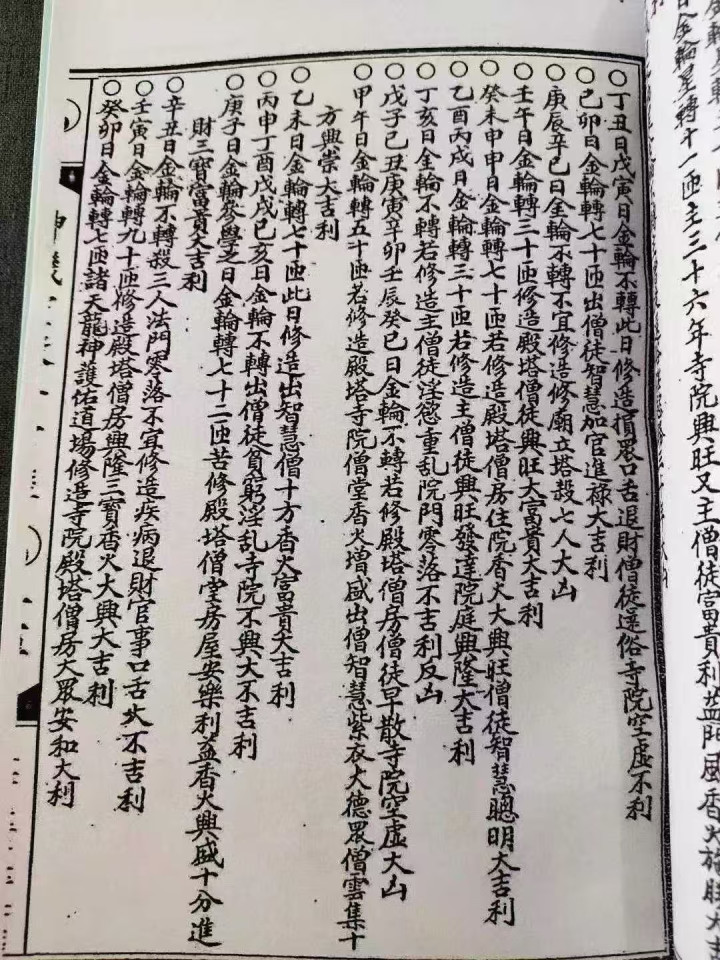 日金輪星轉十一匝主三十六年寺院興旺又主僧徒富貴利益門風香火施勝大吉
○丁丑日戊寅日金輪不轉此日修造損眾口舌退財僧徒還俗寺院空虛不利
○己卯日金輪轉七十匝出僧徒智慧加官進祿大吉利
○庚辰辛巳日金輪不轉不宜修造修廟立塔殺七人大凶
○壬午日金輪轉三十匝修造殿塔僧徒興旺大富貴大吉利
○癸未申申日金輪轉七十匝若修造殿塔僧房住院香火大興旺僧徒智慧聰明大吉利
○乙酉丙戌日金輪轉三十匝若修造主僧徒興旺發達院庭興隆大吉利
○丁亥日金輪不轉若修造主僧徒淫慾重乱院門零落不吉利反凶
○戊子己丑庚寅辛卯壬辰癸巳日金輪不轉若修殿塔僧房僧徒早散寺院空虛大凶
○甲午日金輪轉五十匝若修造殿塔寺院僧堂香火增盛出僧智慧紫衣大德眾僧雲集十
方興崇大吉利
○乙未日金輪轉七十匝此日修造出智慧僧十方香火富貴大吉利
○丙申丁酉戊戌己亥日金輪不轉出僧徒貧窮淫乱寺院不興大不吉利
○庚子日金輪參學之日金輪轉七十二匝苦修殿塔僧堂房屋安樂利益香火興盛十分進
財三寶富貴大吉利
○辛丑日金輪不轉殺三人法門零落不宜修造疾病退財官事口舌大不吉利
○壬寅日金輪轉九十匝修造殿塔僧房興隆三寶香火大興大吉利
○癸卯日金輪轉七匝諸天龍神護佑道場修造寺院殿塔僧房大眾安和大利